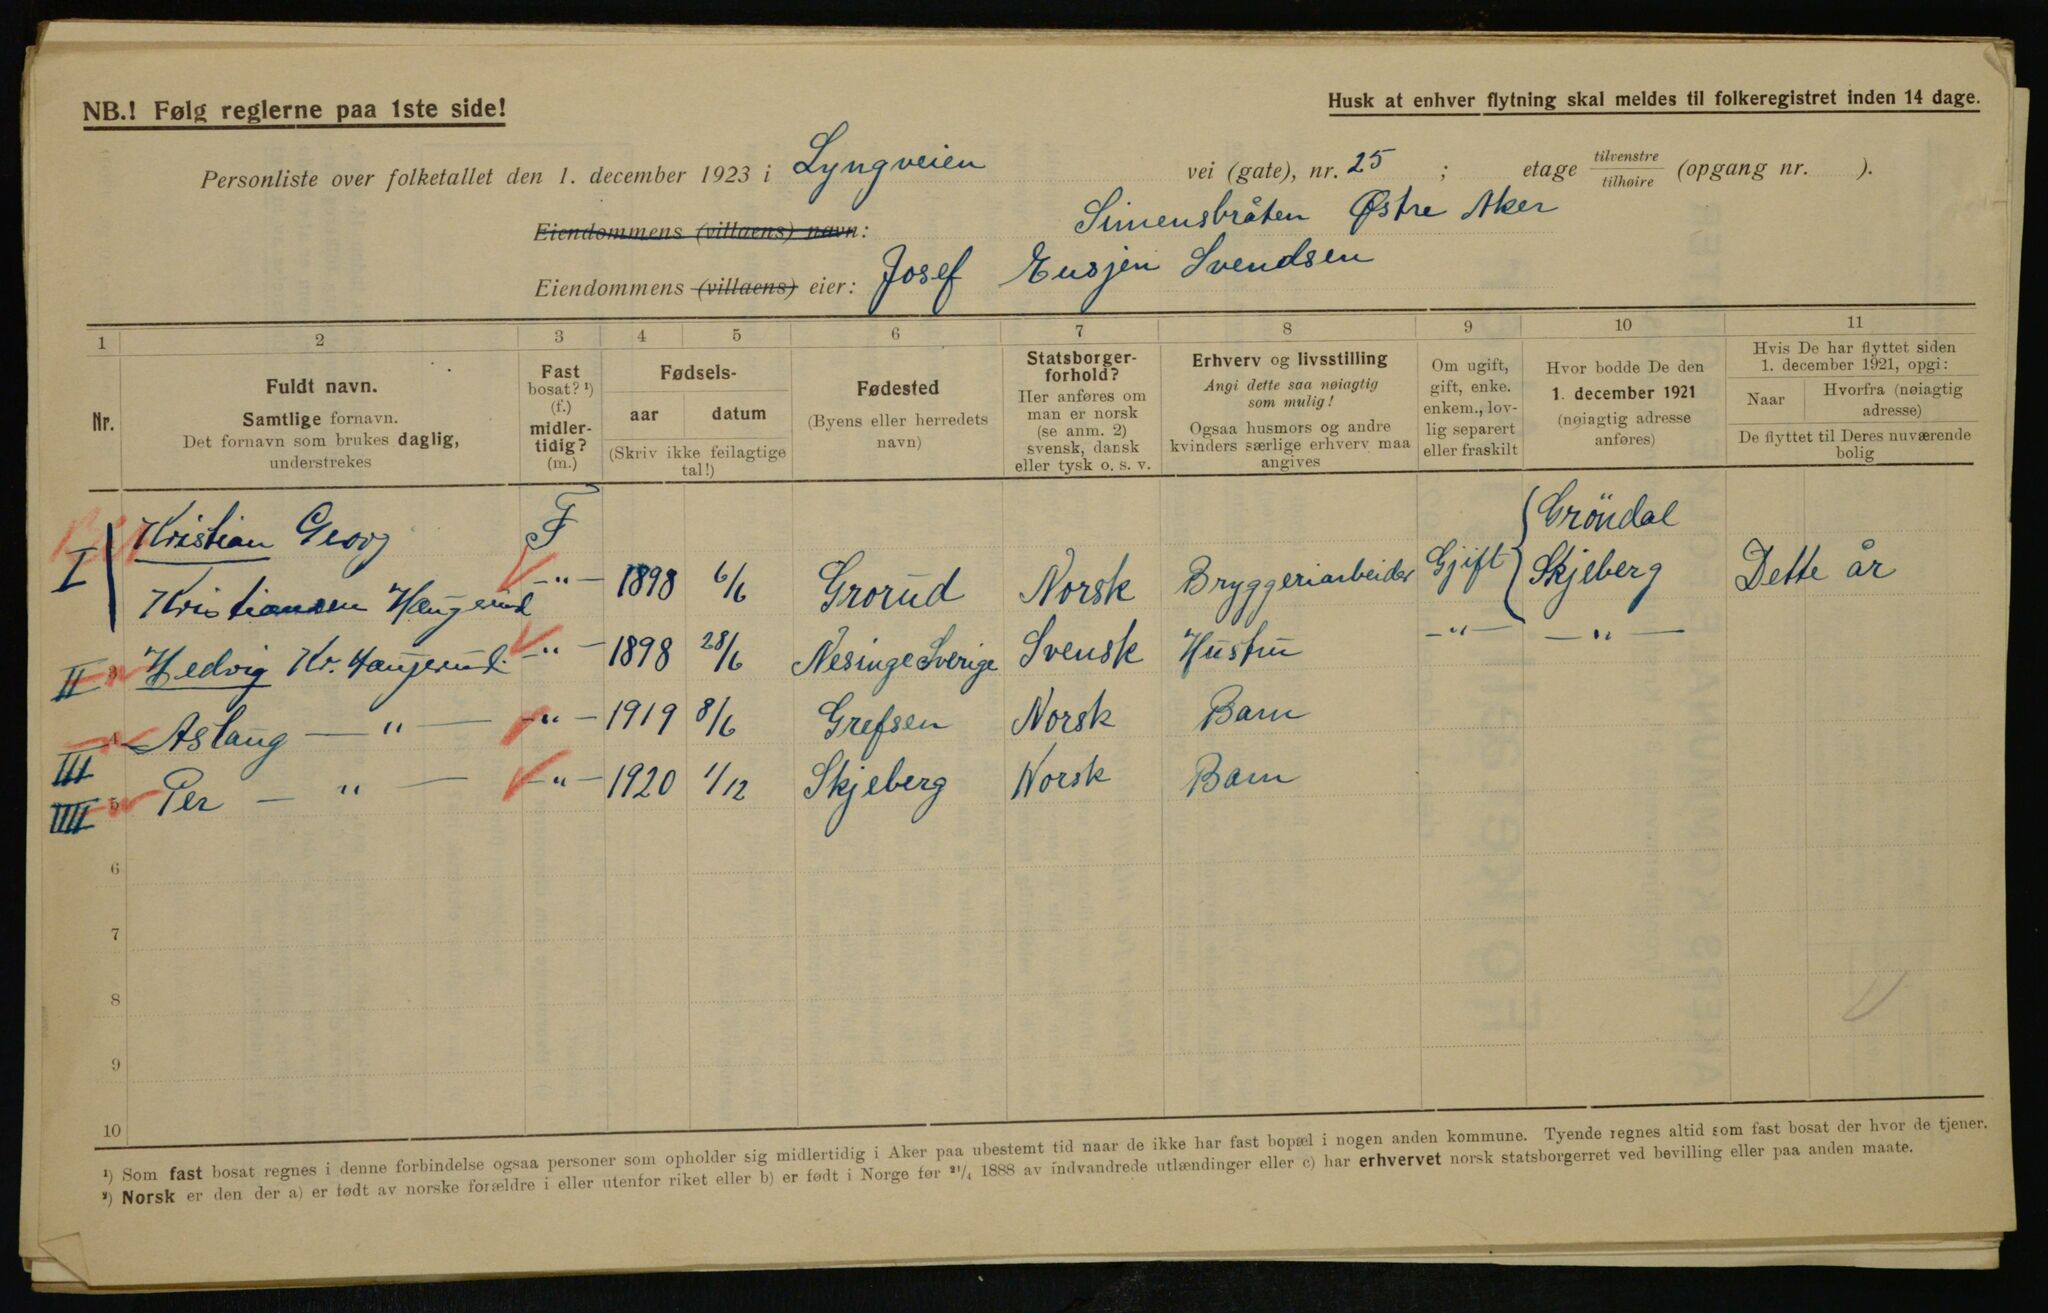 NB.! Følg reglerne paa 1ste side!
Husk at enhver flytning skal meldes til folkeregistret inden 14 dage.
Personliste over folketallet den 1. december 1923 i Lyngveien vei (gate), nr. 25 ; etage tilvenstre tilhøire (opgang nr. ).
Eiendommens (villaens) navn: Simensbråten Østre Aker
Eiendommens (villaens) eier: Josef Eusjen Svendsen
1 2 3 4 5 6 7 8 9 10 11
Nr.
Fuldt navn.
Samtlige fornavn.
Det fornavn som brukes daglig,
understrekes
Fast
bosat? ¹)
(f.)
midler-
tidig?
(m.)
Fødsels-
aar datum
(Skriv ikke feilagtige
tal!)
Fødested
(Byens eller herredets
navn)
Statsborger-
forhold?
Her anføres om
man er norsk
(se anm. 2)
svensk, dansk
eller tysk o. s. v.
Erhverv og livsstilling
Angi dette saa nøiagtig
som mulig!
Ogsaa husmors og andre
kvinders særlige erhverv maa
angives
Om ugift,
gift, enke.
enkem., lov-
lig separert
eller fraskilt
Hvor bodde De den
1. december 1921
(nøiagtig adresse
anføres)
Hvis De har flyttet siden
1. december 1921, opgi:
Naar
Hvorfra (nøiagtig
adresse)
De flyttet til Deres nuværende
bolig
Kristian Georg F Gröndal
I Kristiansen Haugerud -"- 1898 6/6 Grorud Norsk Bryggeriarbeider Gjift Skjeberg Dette år
II 3 Hedvig Kr. Haugerud. -"- 1898 28/6 Nesinge Sverige Svensk Hustru -"- -"-
III 4 Aslaug -"- -"- 1919 8/6 Grefsen Norsk Barn
IIII 5 Per -"- -"- 1920 1/12 Skjeberg Norsk Barn
6
7
8
9
10
¹) Som fast bosat regnes i denne forbindelse ogsaa personer som opholder sig midlertidig i Aker paa ubestemt tid naar de ikke har fast bopæl i nogen anden kommune. Tyende regnes altid som fast bosat der hvor de tjener.
²) Norsk er den der a) er født av norske forældre i eller utenfor riket eller b) er født i Norge før ²¹/₄ 1888 av indvandrede utlændinger eller c) har erhvervet norsk statsborgerret ved bevilling eller paa anden maate.